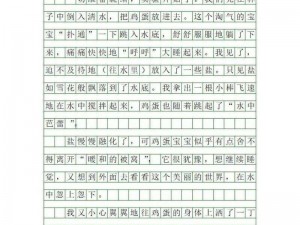 子中倒入清水，把鸡蛋放进去，这个淘气的宝
宝“扑通”一下跳入水底，舒舒服服地躺了下
来，痛痛快快地“呼呼”大睡起来。我见了，
迫不及待地（往水里）放入了一些盐，只见盐
如雪花般飘落到了水底。我拿出一根小棒飞速
地在水中搅拌起来，鸡蛋也随着跳起了“水中
芭蕾”。
盐慢慢融化了，可鸡蛋宝宝似乎有点舍不
得离开“暖和的被窝”，它很犹豫，想继续睡
觉，又想到外面去看看这个美丽的世界，在水
中忽上忽下。
我又小心翼翼地往鸡蛋的身体上洒了一丁